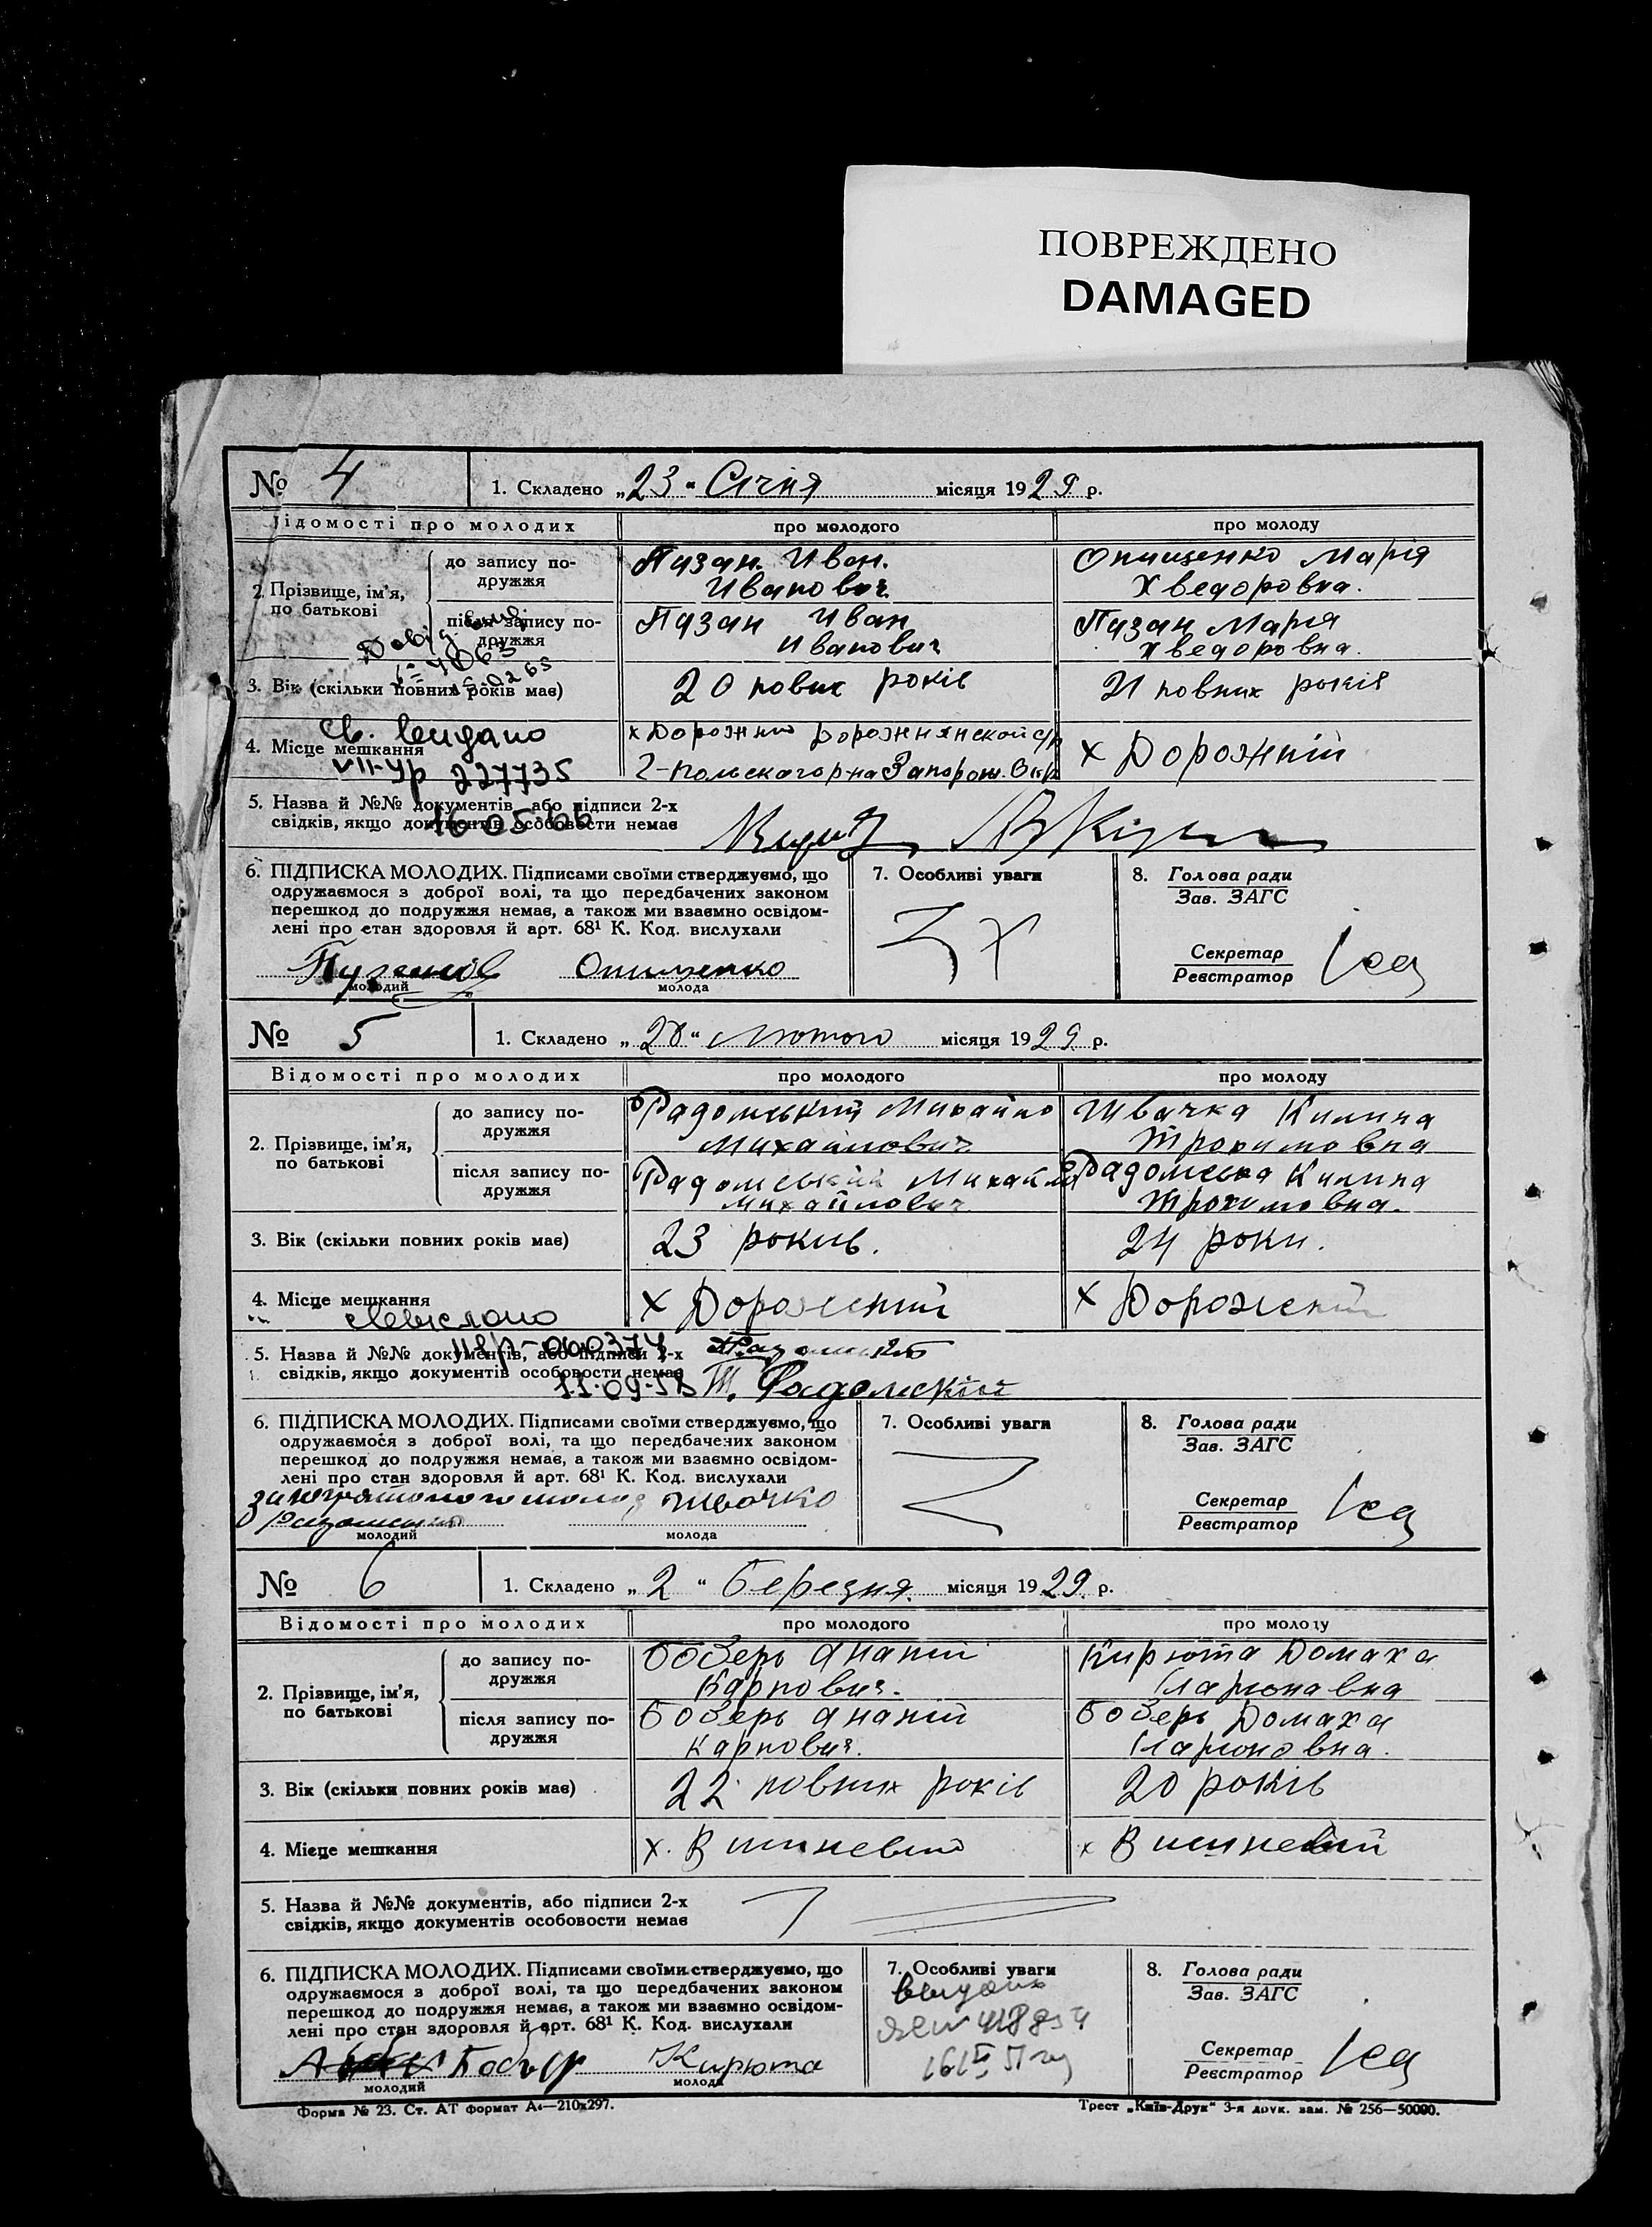 ПОВРЕЖДЕНО
DAMAGED
№ 4 1. Складено „23“ Січня місяця 1929 р.
Відомості про молодих про молодого про молоду
2. Прізвище, ім’я, по батькові
до запису подружжя
Пузан Иван Иванович
Опищенко Марія Хведоровна.
після запису подружжя
Пузан Иван Иванович
Пузан Марія Хведоровна.
3. Вік (скільки повних років має) 20 пових років 21 повних років
4. Місце мешкання х Дорожний х Дорожній
Св. видано
227735
16.05.66
5. Назва й №№ документів, або підписи 2-х
свідків, якщо документів особовости немає
6. ПІДПИСКА МОЛОДИХ. Підписами своїми стверджуємо, що
одружаємося з доброї волі, та що передбачених законом
перешкод до подружжя немає, а також ми взаємно освідом-
лені про стан здоровля й арт. 68¹ К. Код. вислухали
Опищенко
молодий молода
7. Особливі уваги
8. Голова ради
Зав. ЗАГС
Секретар
Реєстратор
№ 5 1. Складено „28“ Лютого місяця 1929 р.
Відомості про молодих про молодого про молоду
2. Прізвище, ім’я, по батькові
до запису подружжя
Радомський Михайло Михайлович
Швачка Килина Трохимовна
після запису подружжя
Радомський Михайло Михайлович
Радомська Килина Трохимовна.
3. Вік (скільки повних років має) 23 рокив. 24 роки.
4. Місце мешкання х Дорожній х Дорожній
5. Назва й №№ документів, або підписи 2-х
свідків, якщо документів особовости немає
11.09.58
6. ПІДПИСКА МОЛОДИХ. Підписами своїми стверджуємо, що
одружаємося з доброї волі, та що передбачених законом
перешкод до подружжя немає, а також ми взаємно освідом-
лені про стан здоровля й арт. 68¹ К. Код. вислухали
Швачко
молодий молода
7. Особливі уваги
8. Голова ради
Зав. ЗАГС
Секретар
Реєстратор
№ 6 1. Складено „2“ Березня. місяця 1929 р.
Відомості про молодих про молодого про молоду
2. Прізвище, ім’я, по батькові
до запису подружжя
Бобер Ананій Карпович.
Кирюта Домаха Іларионавна
після запису подружжя
Бобер Ананій Карпович.
Бобер Домаха Іларионовна.
3. Вік (скільки повних років має) 22 повних років 20 років
4. Місце мешкання х. Вишневий х Вишневий
5. Назва й №№ документів, або підписи 2-х
свідків, якщо документів особовости немає
6. ПІДПИСКА МОЛОДИХ. Підписами своїми стверджуємо, що
одружаємося з доброї волі, та що передбачених законом
перешкод до подружжя немає, а також ми взаємно освідом-
лені про стан здоровля й арт. 68¹ К. Код. вислухали
Кирюта
молодий молода
7. Особливі уваги
видано
8. Голова ради
Зав. ЗАГС
Секретар
Реєстратор
Форма № 23. Ст. АТ формат А4—210х297. Трест „Київ-Друк“ 3-я друк. зам. № 256—50000.